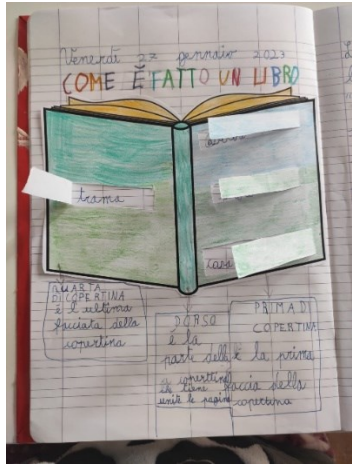 Venerdì 27 gennaio 2023
COME È FATTO UN LIBRO
trama
QUARTA
DI COPERTINA
è l'ultima
facciata della
copertina
DORSO
è la
parte della
copertina
che tiene
unite le pagine
PRIMA DI
COPERTINA
è la prima
faccia della
copertina